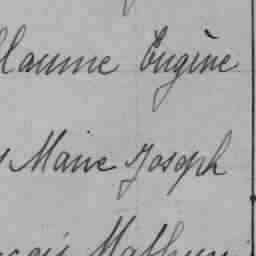 llaume Eugène
Marie Joseph
Mathurin